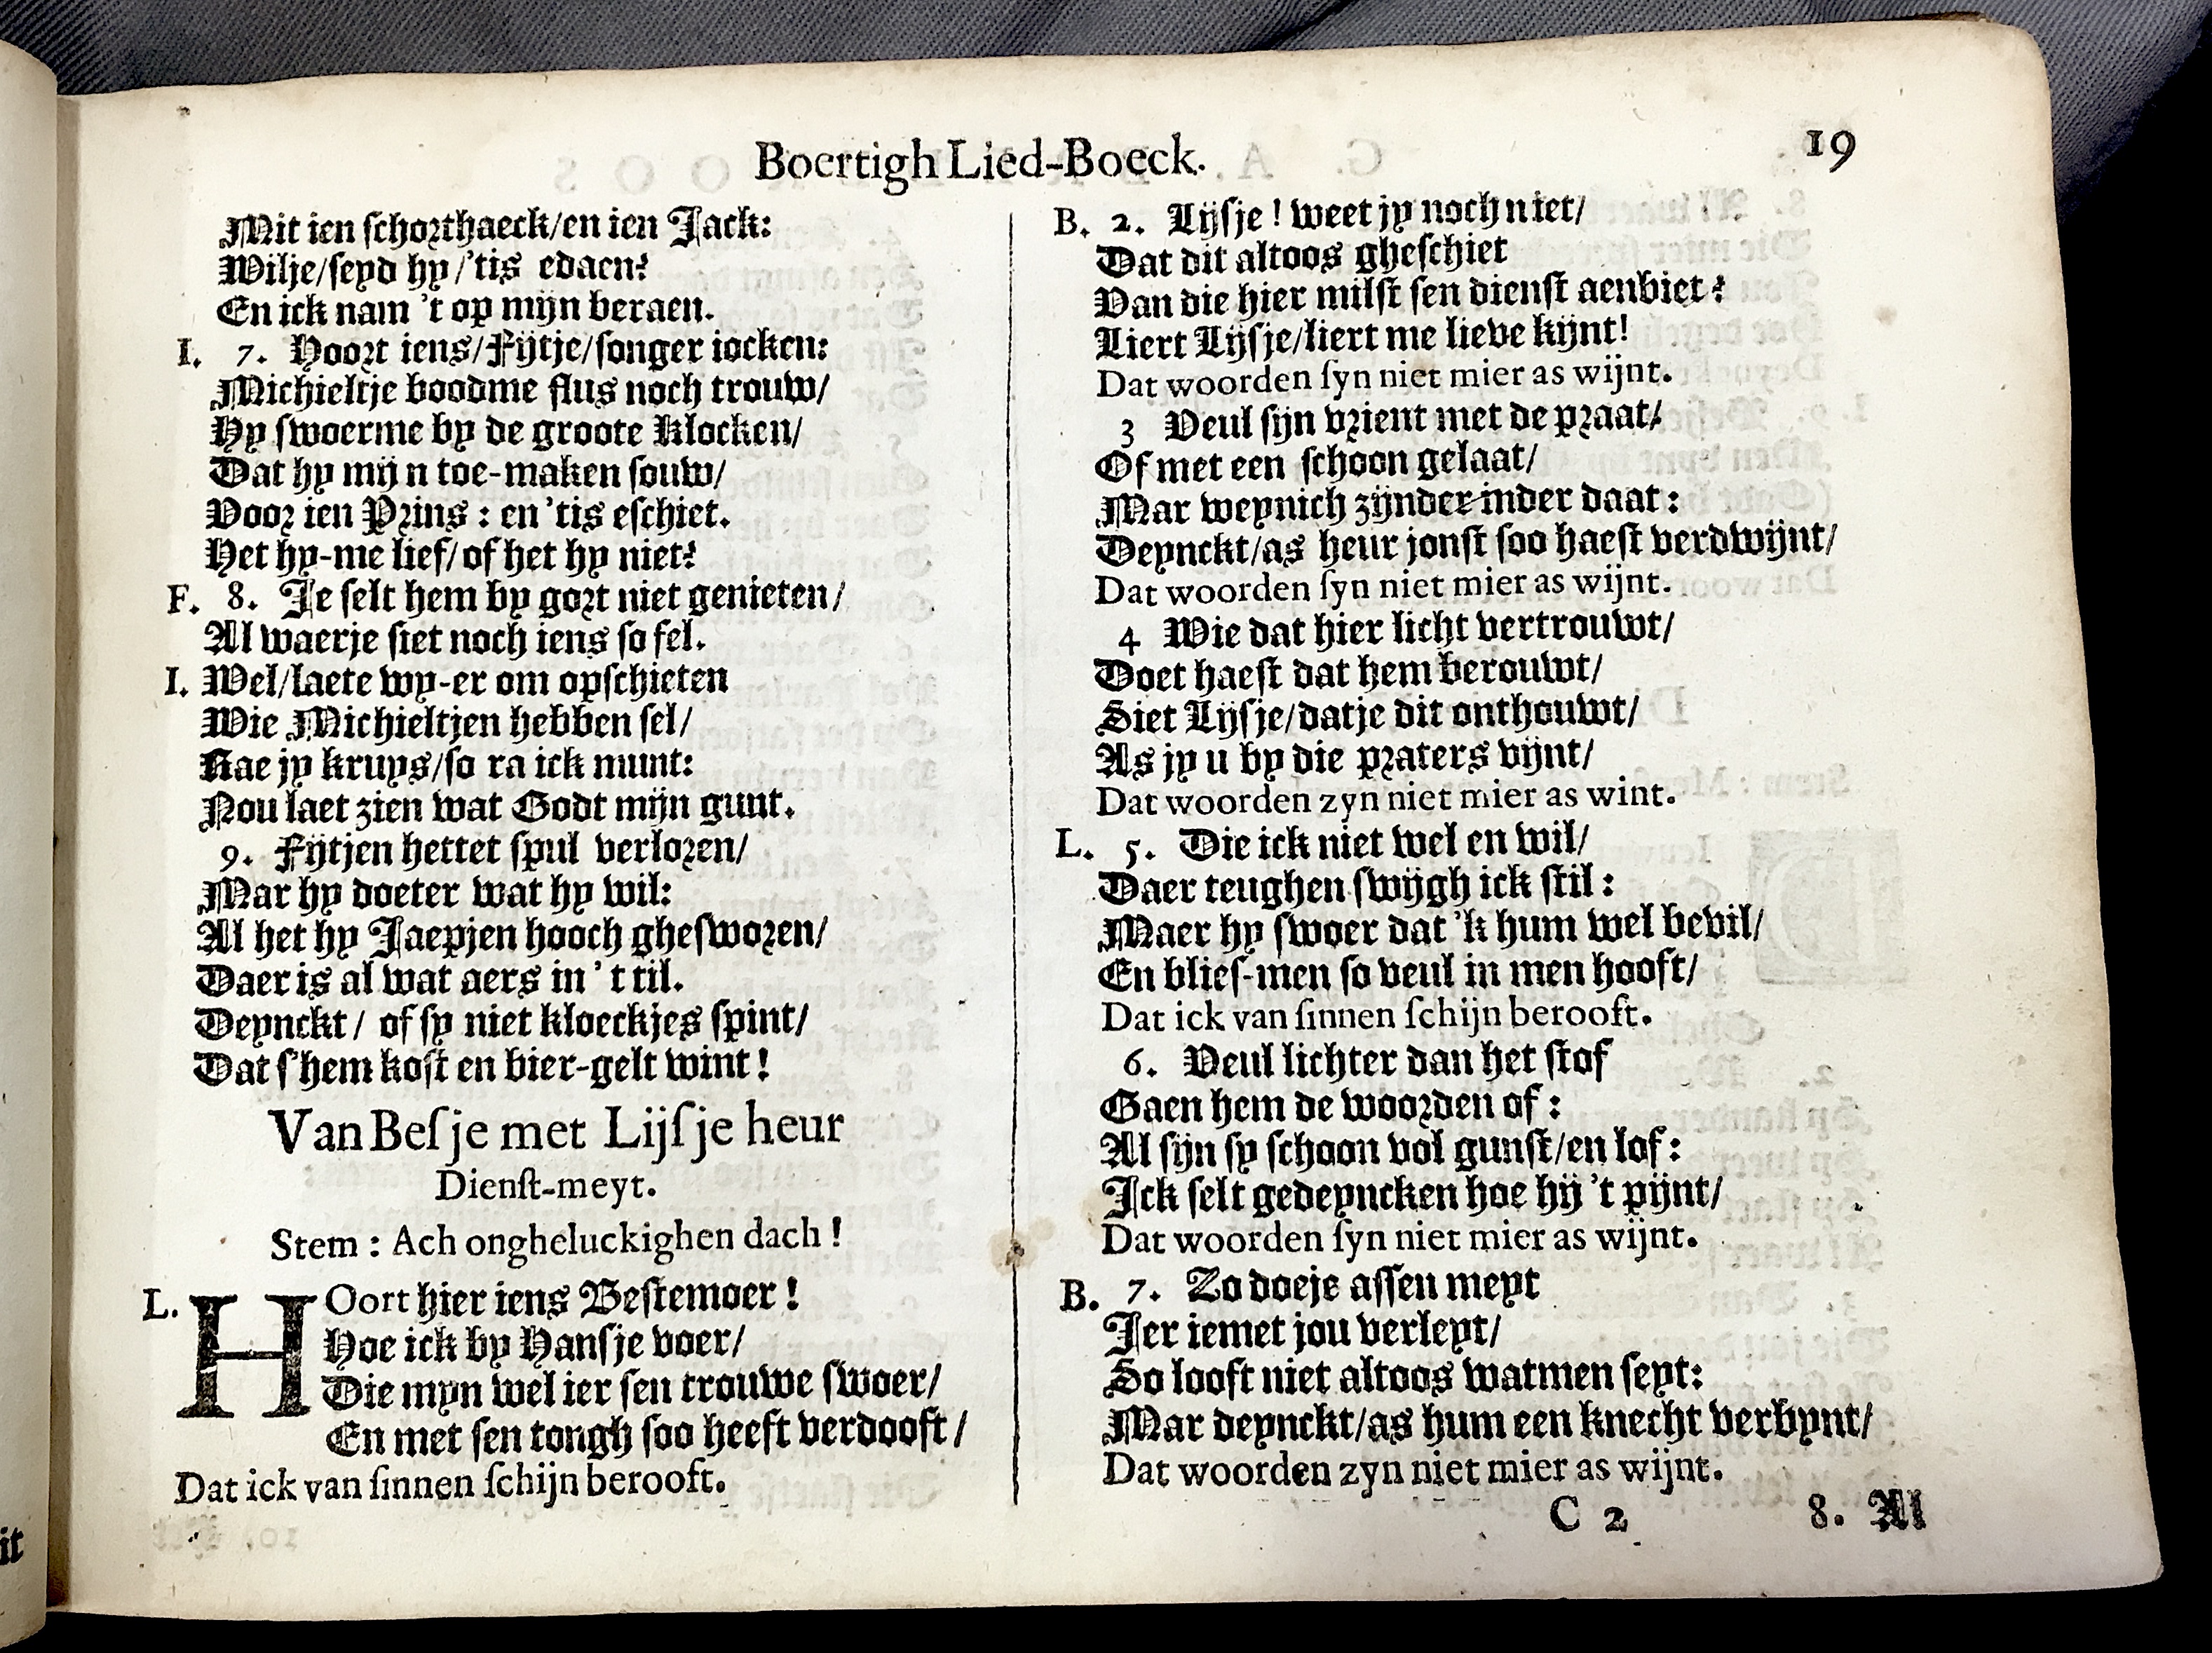 Boertigh Lied-Boeck.
19
Mit ien schorthaeck/en ien Jack:
Wilje/seyd hy/'tis edaen?
En ick nam 't op mijn beraen.
I. 7. Hoort iens/Fijtje/songer iocken:
Michieltje boodme flus noch trouw/
Hy swoerme by de groote Klocken/
Dat hy mijn toe-maken souw/
Voor ien Prins : en 'tis eschiet.
Het hy-me lief/of het hy niet?
F. 8. Je selt hem by gort niet genieten/
Al waerje siet noch iens so fel.
I. Wel/laete wy-er om opschieten
Wie Michieltjen hebben sel/
Kae jy kruys/so ra ick munt:
Nou laet zien wat Godt mijn gunt.
9. Fijtjen hettet spul verloren/
Mar hy doeter wat hy wil:
Al het hy Jaepjen hooch ghesworen/
Daer is al wat aers in 't til.
Deynckt/ of sy niet kloeckjes spint/
Dat s'hem kost en bier-gelt wint!
Van Besje met Lijsje heur
Dienst-meyt.
Stem : Ach ongheluckighen dach!
L. HOort hier iens Bestemoer!
Hoe ick by Hansje voer/
Die myn wel ier sen trouwe swoer/
En met sen tongh soo heeft verdooft/
Dat ick van sinnen schijn berooft.
B. 2. Lijsje! weet jy noch niet/
Dat dit altoos gheschiet
Van die hier milst sen dienst aenbiet?
Liert Lijsje/liert me lieve kijnt!
Dat woorden syn niet mier as wijnt.
3 Veul sijn vrient met de praat/
Of met een schoon gelaat/
Mar weynich zijnder inder daat:
Deynckt/as heur jonst soo haest verdwijnt/
Dat woorden syn niet mier as wijnt.
4 Wie dat hier licht vertrouwt/
Doet haest dat hem berouwt/
Siet Lijsje/datje dit onthouwt/
As jy u by die praters vijnt/
Dat woorden zyn niet mier as wint.
L. 5. Die ick niet wel en wil/
Daer teughen swijgh ick stil:
Maer hy swoer dat 'k hum wel bevil/
En blies-men so veul in men hooft/
Dat ick van sinnen schijn berooft.
6. Veul lichter dan het stof
Gaen hem de woorden of:
Al sijn sy schoon vol gunst/en lof:
Ick selt gedeyncken hoe hij 't pijnt/
Dat woorden syn niet mier as wijnt.
B. 7. Zo doeje assen meyt
Jer iemet jou verleyt/
So looft niet altoos watmen seyt:
Mar deynckt/as hum een knecht verbynt/
Dat woorden zyn niet mier as wijnt.
C 2
8. Al
it